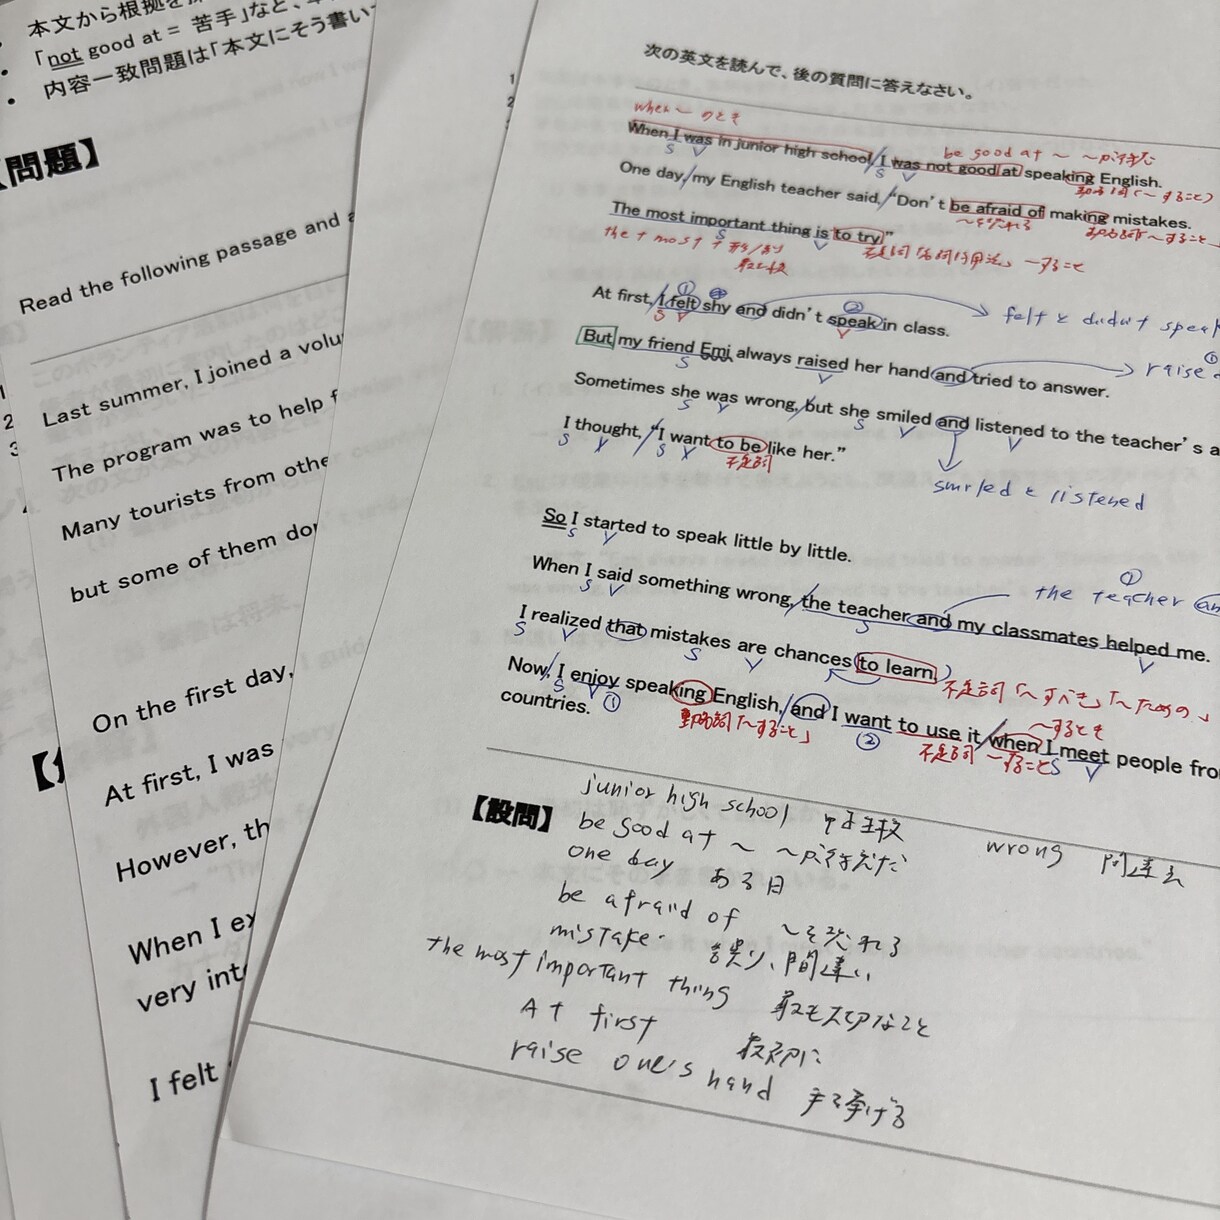 本文から根拠を
「not good at = 苦手」など、
内容一致問題は「本文にそう書い
問題】
Read the following passage and
Last summer, I joined a volu
The program was to help f
Many tourists from othe
but some of them do
On the first day,
At first, I was
However, th
When I ex
very int
I felt
次の英文を読んで、後の質問に答えなさい。
when ~ のとき
When I was in junior high school, I was not good at speaking English.
be good at ~ ~が得意だ
S V S V
動名詞「~すること」
One day, my English teacher said, “Don't be afraid of making mistakes.
~を恐れる
動名詞「~すること
The most important thing is to try.”
S V
the + most + 形/副
最上級
不定詞「名詞的用法」 ~すること
① ②
At first, I felt shy and didn't speak in class.
S V V
felt と didn't speak
But my friend Emi always raised her hand and tried to answer.
S V
①
raise
Sometimes she was wrong, but she smiled and listened to the teacher's a
S V S V V
smiled と listened
I thought, “I want to be like her.”
S V S V
不定詞
So I started to speak little by little.
S V
When I said something wrong, the teacher and my classmates helped me.
S V S V
①
the teacher an
I realized that mistakes are chances to learn.
S V S V
不定詞「~すべき」「~ための」
Now, I enjoy speaking English, and I want to use it when I meet people fro
S V ① ② S V
動名詞「~すること」
不定詞 ~すること
~するとき
countries.
【設問】
junior high school 中学校
be good at ~ ~が得意だ
one day ある日
be afraid of ~を恐れる
mistake 誤り、間違い
the most important thing 最も大切なこと
At first 最初に
raise one's hand 手を挙げる
wrong 間違え